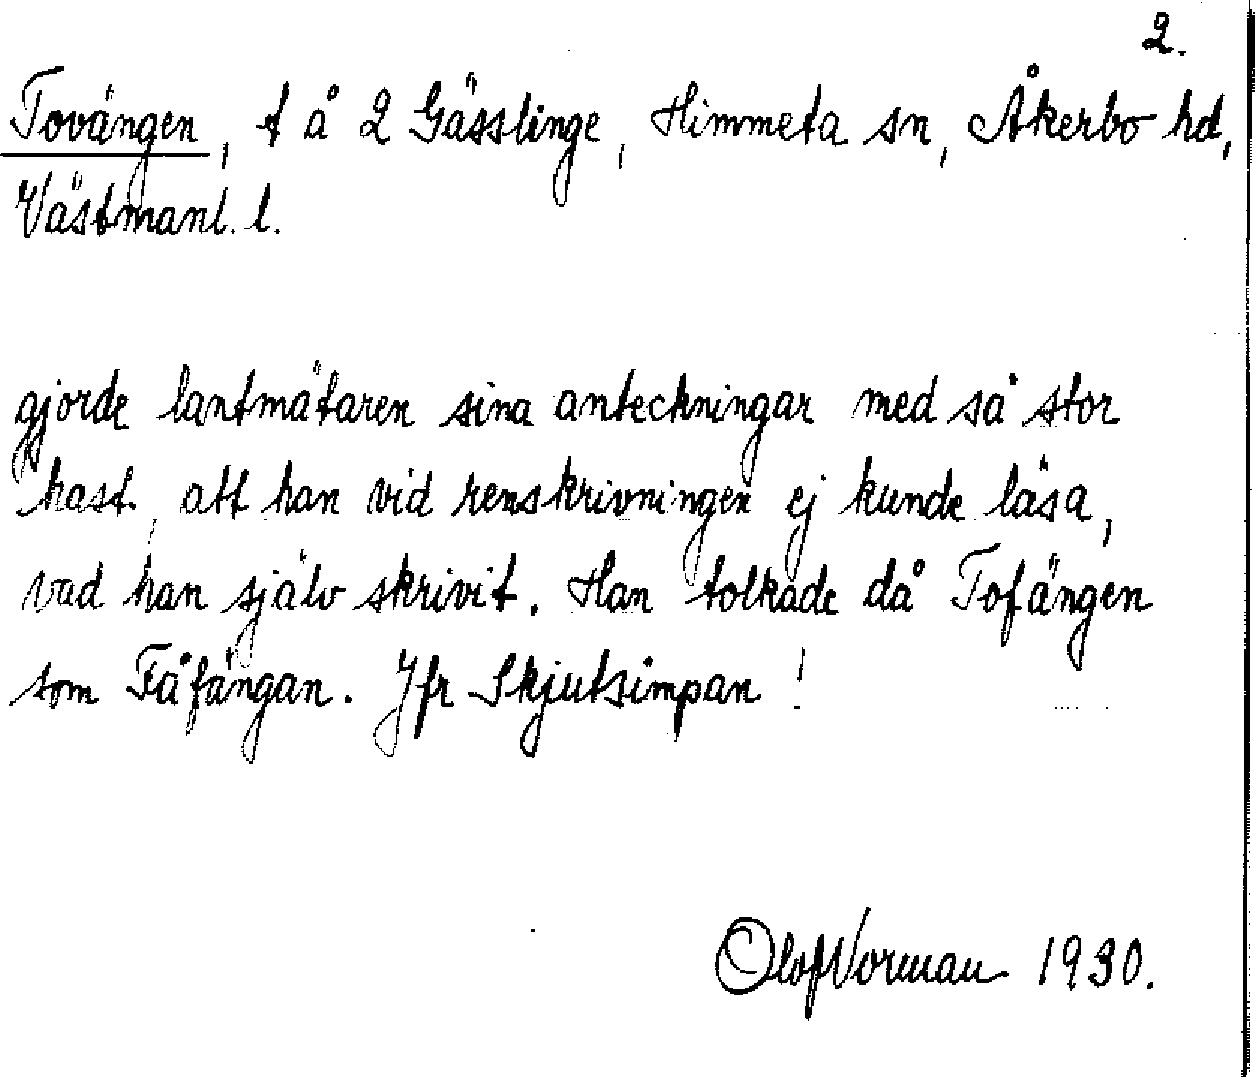 2.
Tovängen, t å 2 Gässlinge, Himmeta sn, Åkerbo hd,
Västmanl. l.
gjorde lantmätaren sina anteckningar med så stor
hast, att han vid renskrivningen ej kunde läsa,
vad han själv skrivit. Han tolkade då Tofängen
som Fåfängan. Jfr Skjutsimpan!
Olof Vorman 1930.